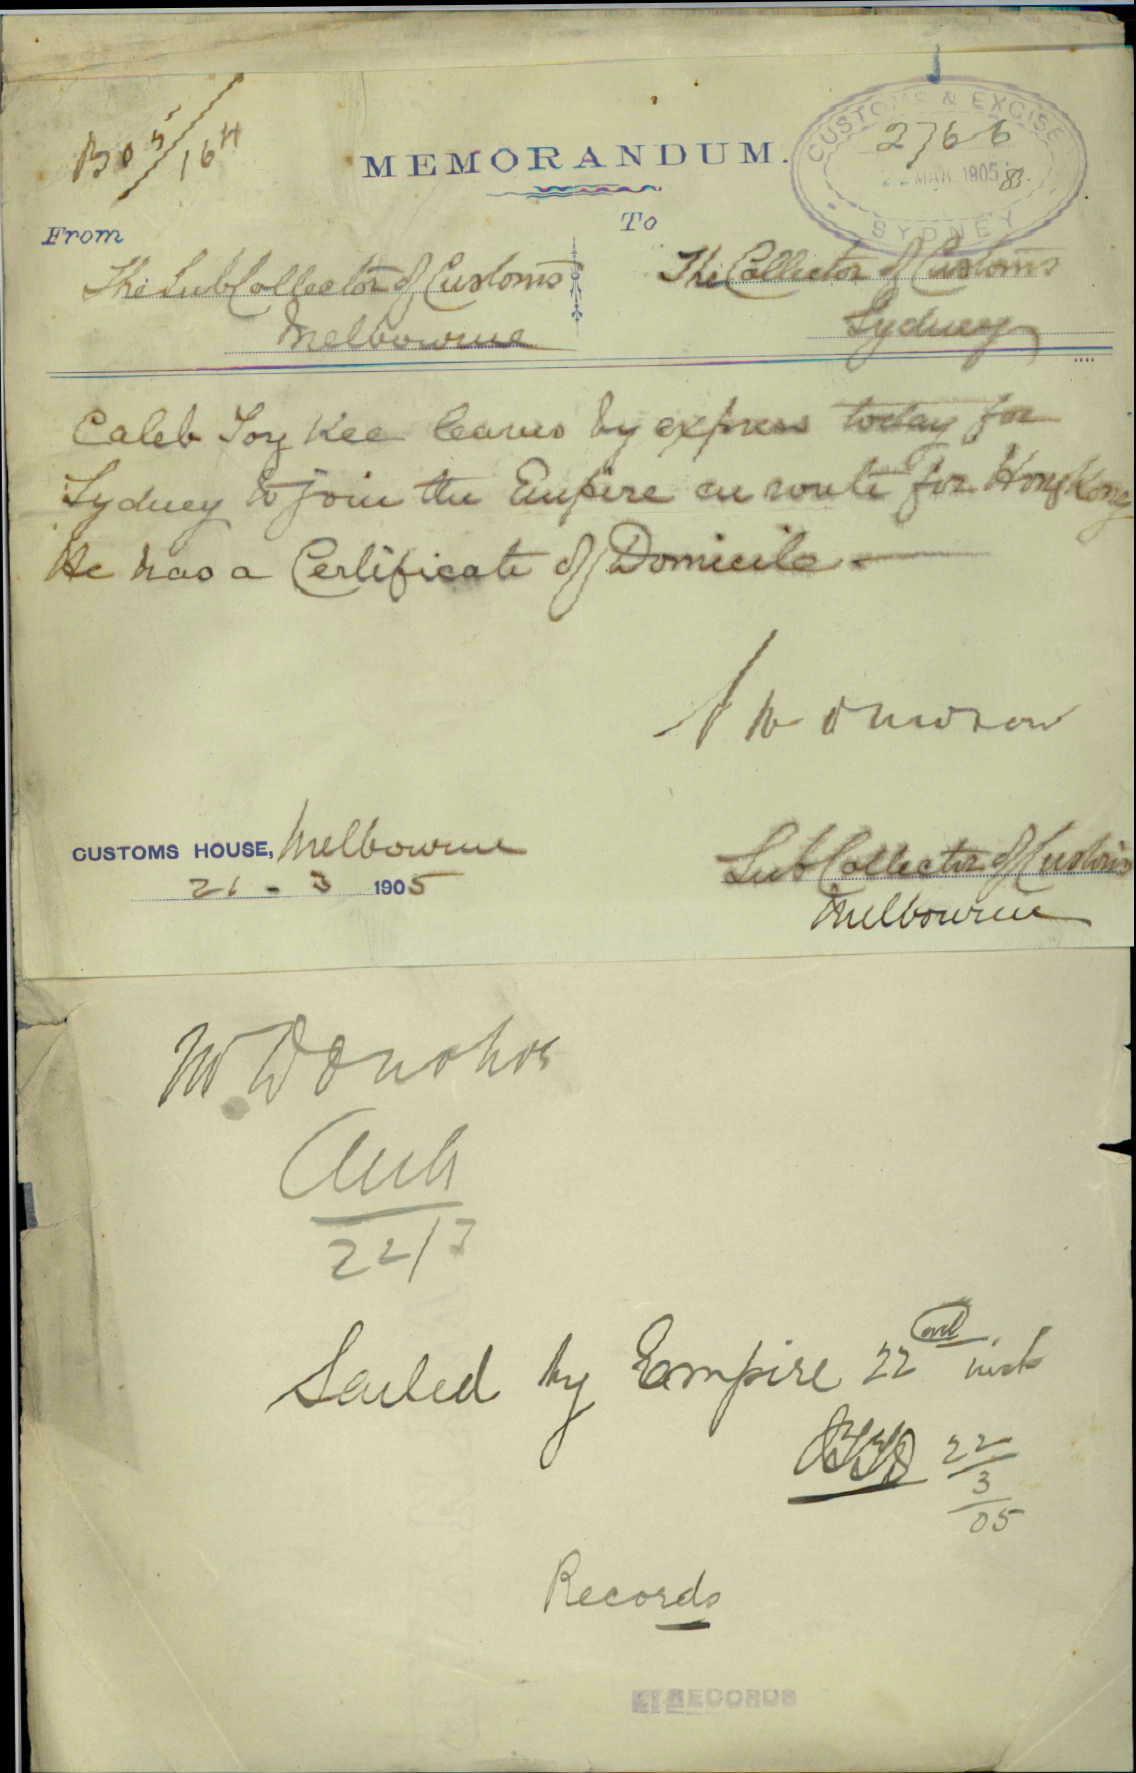 B05/164
MEMORANDUM.
CUSTOMS & EXCISE
2766
MAR 1905
SYDNEY
From
The Sub Collector of Customs
Melbourne
To
The Collector of Customs
Sydney
Caleb Joy Kee leaves by express today for
Sydney to join the Empire en route for Hong Kong
He has a Certificate of Domicile.
CUSTOMS HOUSE, Melbourne
21 - 3 1905
Sub Collector of Customs
Melbourne
Mr Donohoe
22/3
Sailed by Empire 22nd inst
22/3/05
Records
RECORDS